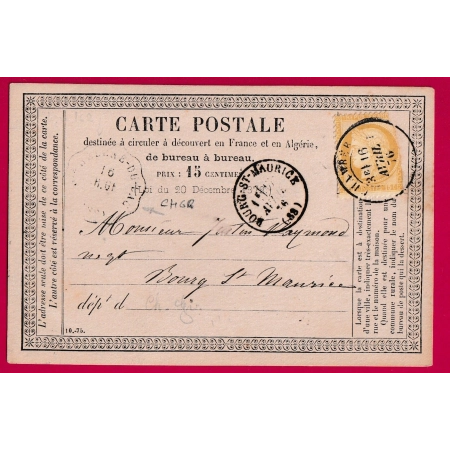 CARTE POSTALE
destinée à circuler à découvert en France et en Algérie,
de bureau à bureau.
PRIX : 15 CENTIMES
Loi du 20 Décembre
CHGR
BOURG-ST-MAURICE
(88)
CHAMBER
16
AVRIL
Monsieur Justin Raymond
negt
Bourg St Maurice
dépt d
10.-75.
L'adresse seule doit être mise de ce côté de la carte.
L'autre côté est réservé à la correspondance.
Lorsque la carte est à destination
d'une ville, indiquer très-exactement
rue et le numéro de la maison.
Quand elle est destinée pour une
commune rurale, indiquer le nom du
bureau de poste qui la dessert.